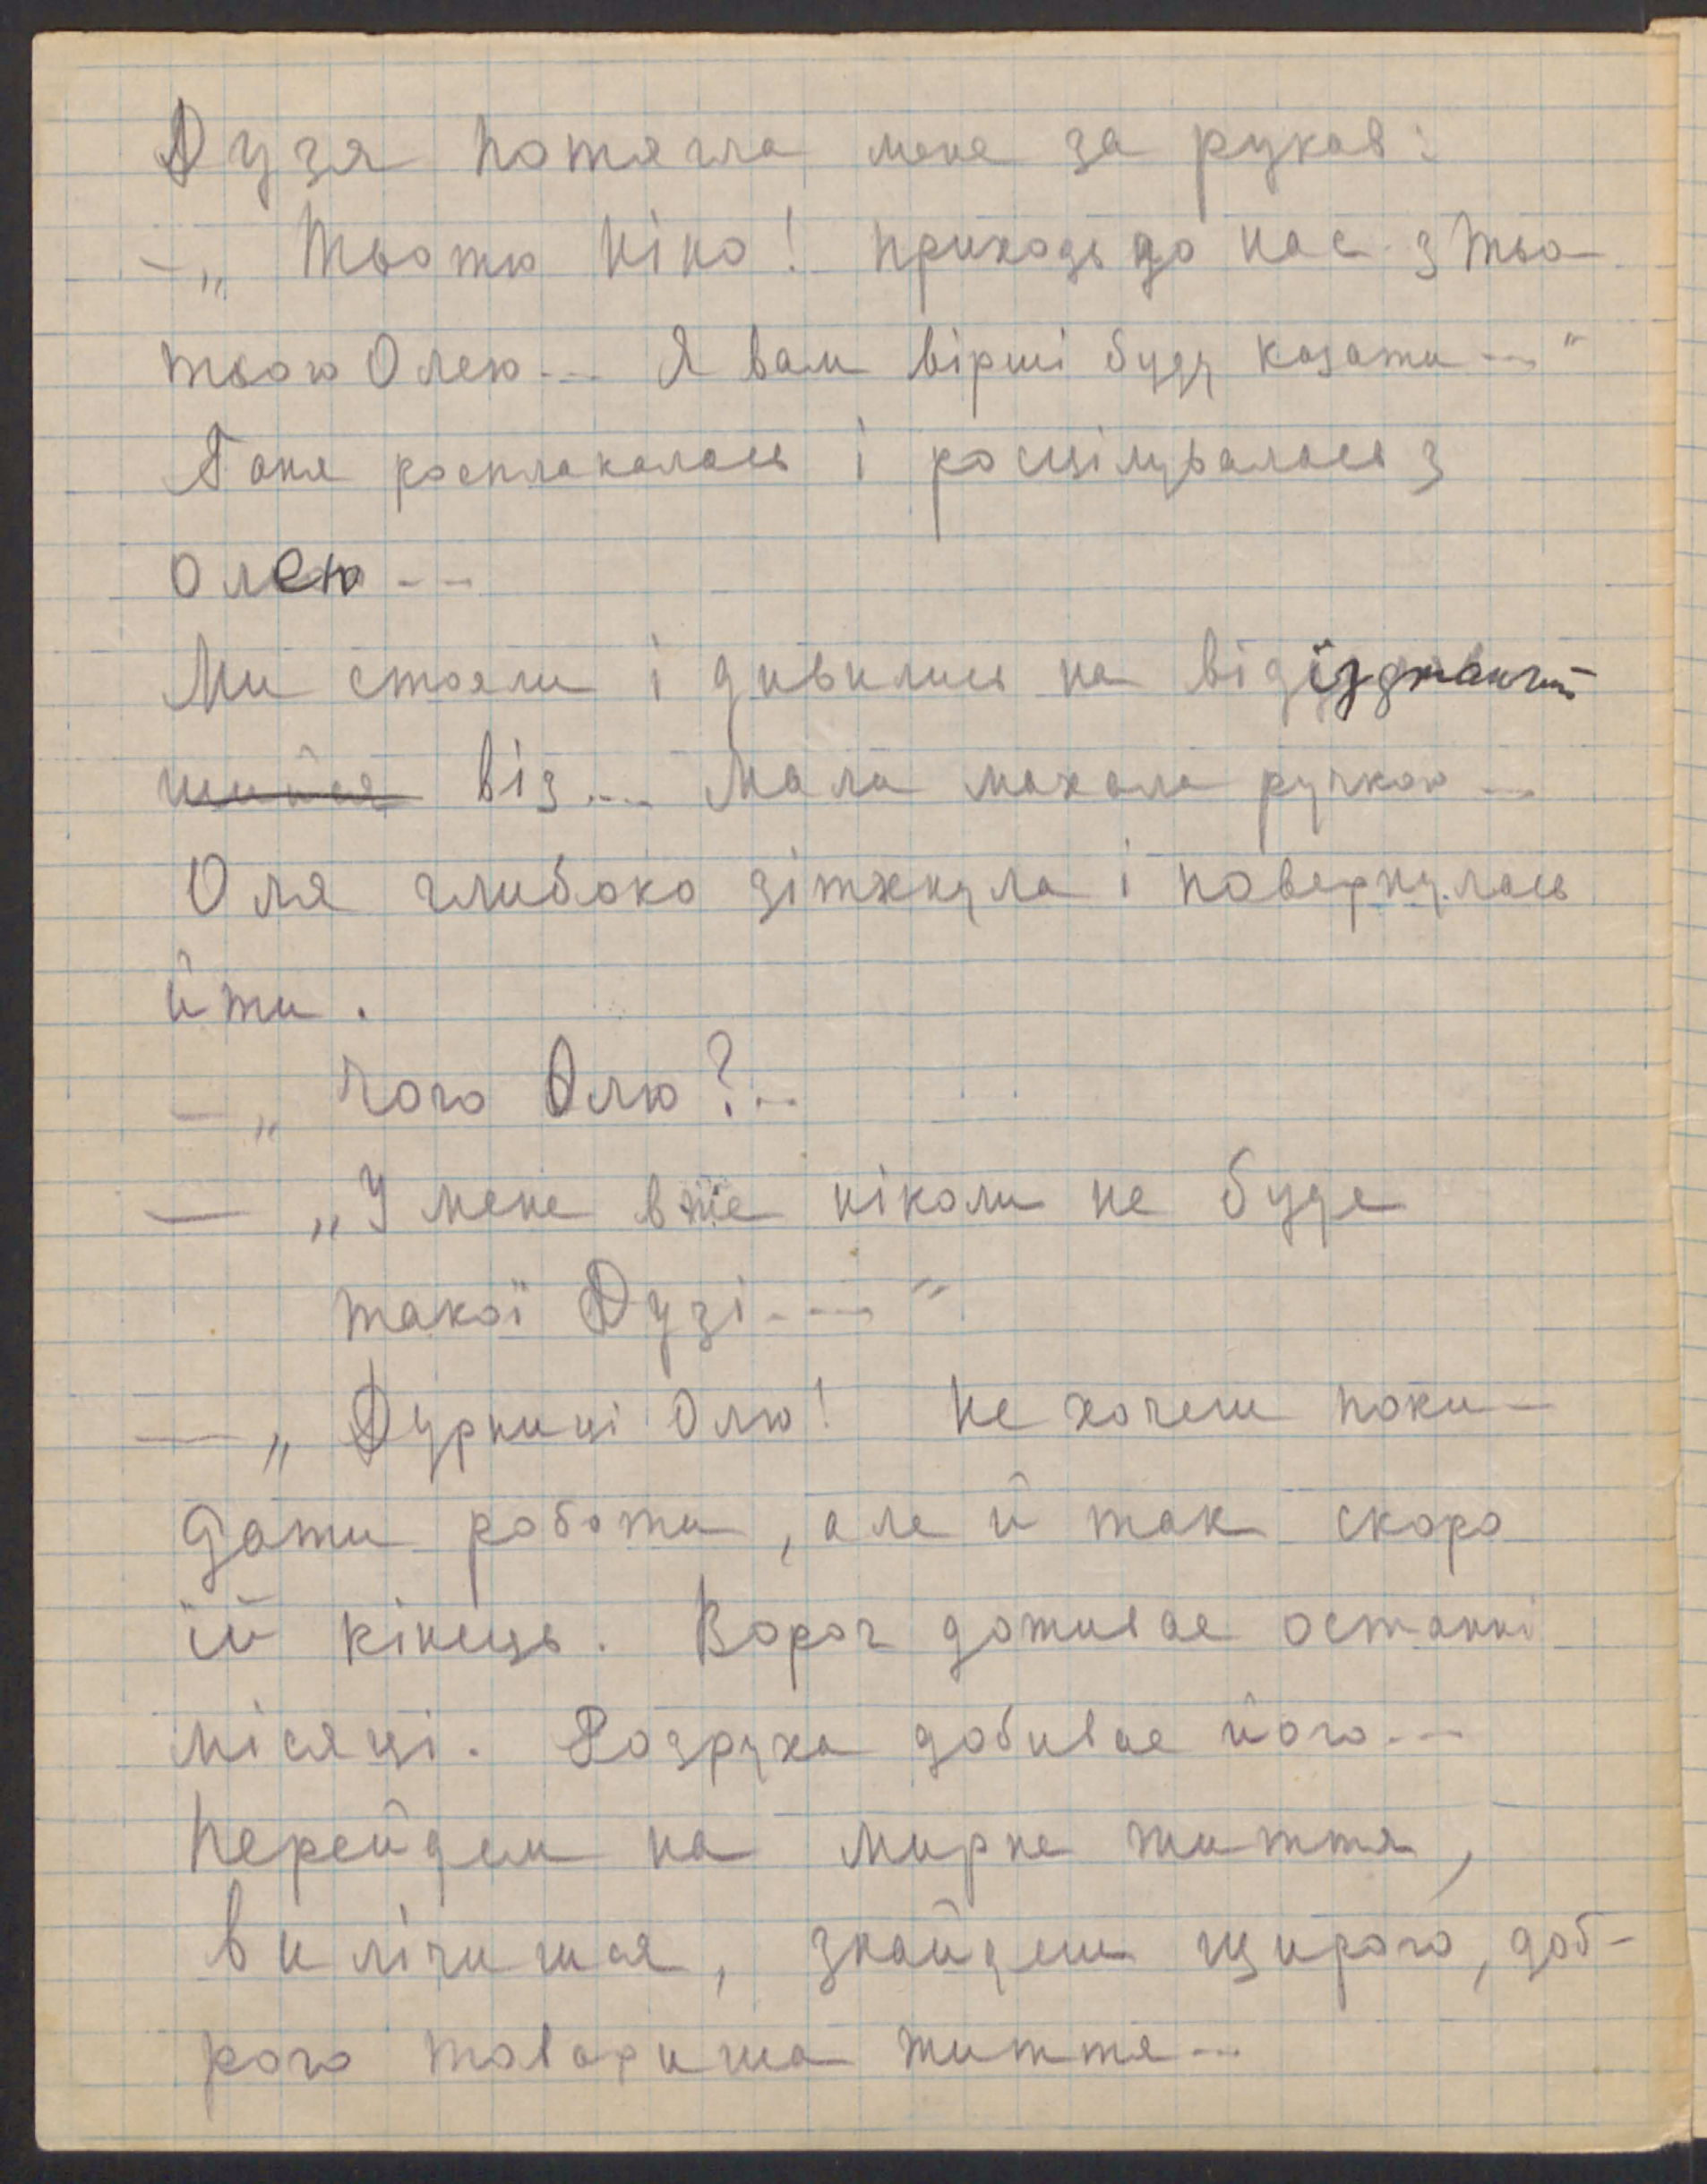 Дузя потягла мене за рукав:
—„ Тьотю Ніно! приходь до нас з тьо-
тьою Олею... Я вам вірші буду казати..."
Ганя росплакалась і росцілувалась з
Олею...
Ми стояли і дивились на відїзджаючий
віз... Мала махала ручкою...
Оля глибоко зітхнула і повернулась
йти.
—„ Чого Олю?..
— „У мене вже ніколи не буде
такої Дузі...."
—„ Дурниці Олю! Не хочеш поки-
дати роботи, але й так скоро
їй кінець. Ворог доживає останні
місяці. Розруха добиває його...
Перейдем на мирне життя,
вилічишся, знайдеш щирого, доб-
рого товариша життя...